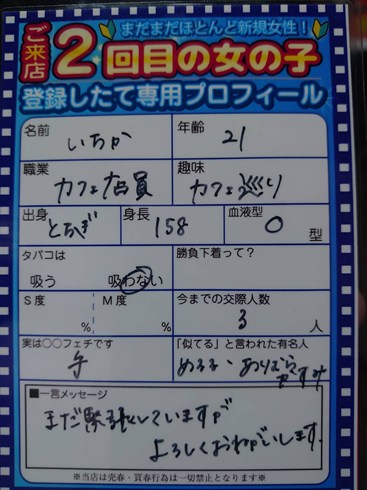 まだまだほとんど新規女性!
ご来店2回目の女の子
登録したて専用プロフィール
名前 いちか 年齢 21
職業 カフェ店員 趣味 カフェ巡り
出身 とちぎ 身長 158 血液型 O 型
タバコは 吸う 吸わない 勝負下着って?
S度 % M度 % 今までの交際人数 3 人
実は○○フェチです 手 「似てる」と言われた有名人 めるる、ありむらかすみ
■一言メッセージ
まだ緊張していますが
よろしくおねがいします.
※当店は売春・買春行為は一切禁止となります※